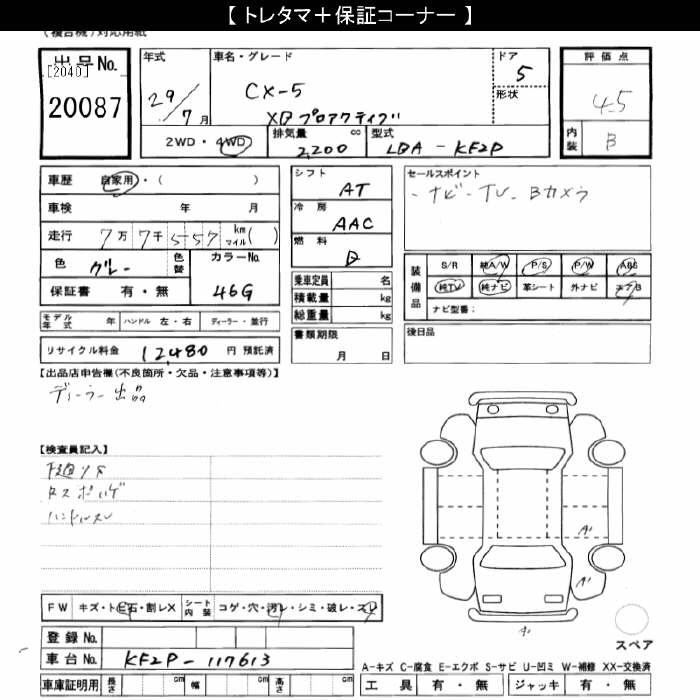 【 トレタマ＋保証コーナー 】
(複合機)対応用紙
出品No.
[2040]
20087
年式
29/7月
車名・グレード
CX-5
XD プロアクティブ
ドア
5
形状
評価点
4.5
内装 B
2WD・4WD
排気量 cc
2,200
型式
LDA - KF2P
車歴 自家用・( )
車検 年 月
走行 7万 7千 5 5 7 km マイル( )
色 グレー 色替
カラーNo.
46G
保証書 有・無
モデル年式 年 ハンドル 左・右 ディーラー・並行
リサイクル料金 12,480 円 預託済
シフト
AT
冷房
AAC
燃料
D
乗車定員 名
積載量 kg
総重量 kg
書類期限
月 日
セールスポイント
・ナビ・TV・Bカメラ
装備品
S/R 純A/W P/S P/W ABS
純TV 純ナビ 革シート 外ナビ エアB
ナビ型番：
後日品
【出品店申告欄(不良箇所・欠品・注意事項等)】
ディーラー出品
【検査員記入】
下廻りサ
ハンドルスレ
A1
A1
A1
FW キズ・トビ石・割レX シート内装 コゲ・穴・汚レ・シミ・破レ・スレ
登録No.
車台No. KF2P - 117613
車庫証明用 長さ cm 幅 cm 高さ cm
スペア
A-キズ C-腐食 E-エクボ S-サビ U-凹ミ W-補修 XX-交換済
工具 有・無 ジャッキ 有・無